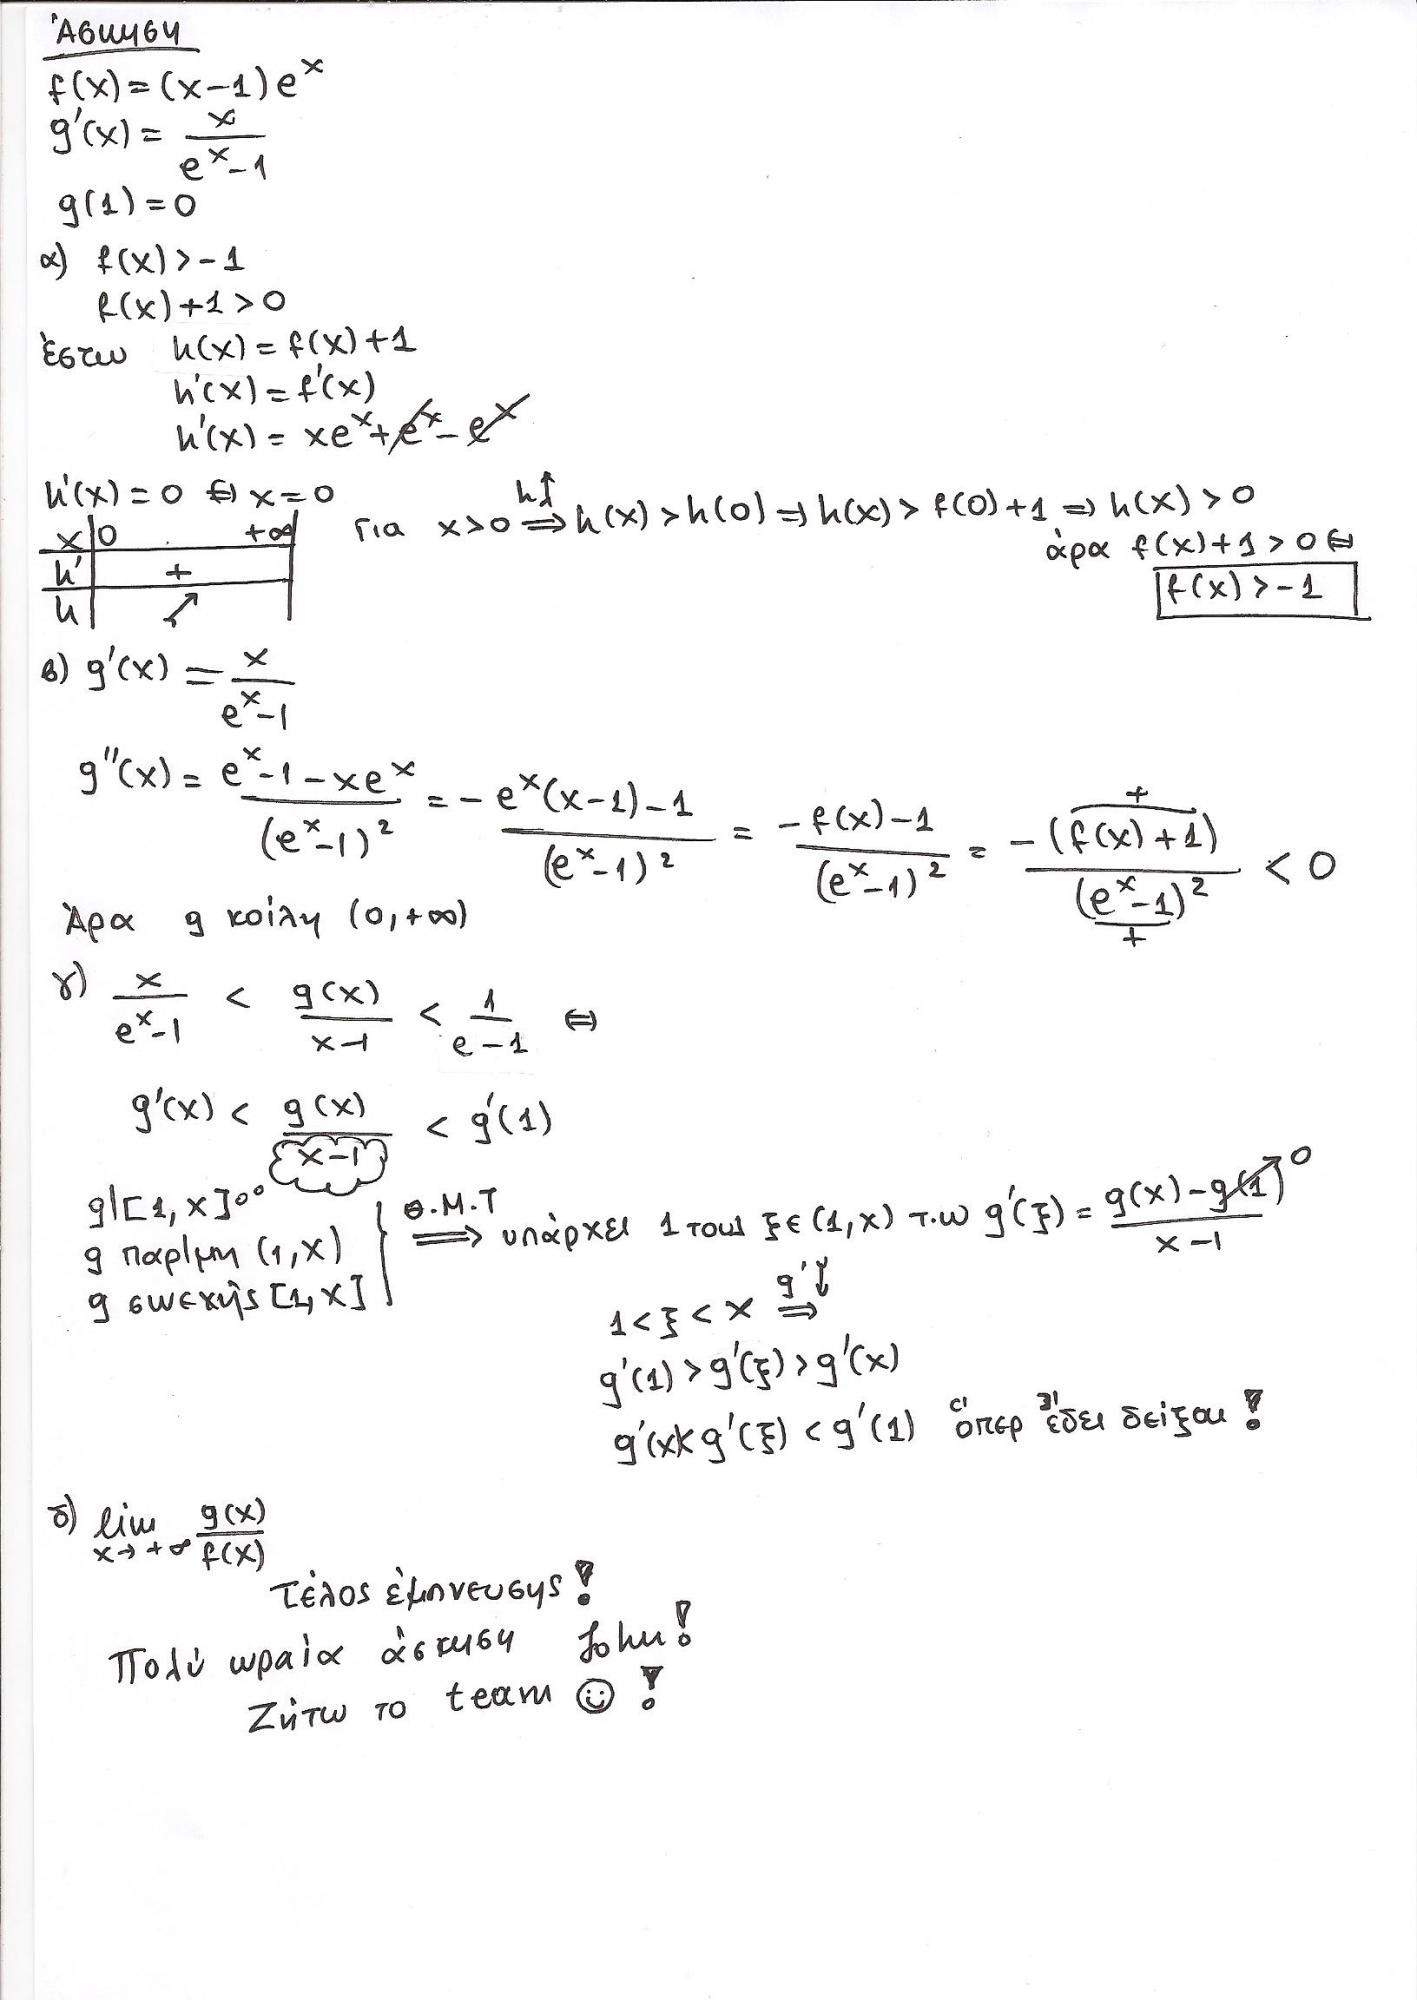 Ἄσκηση
f(x) = (x-1)e^x
g'(x) = x/(e^x-1)
g(1) = 0
α) f(x) > -1
f(x)+1 > 0
ἔστω h(x) = f(x)+1
h'(x) = f'(x)
h'(x) = xe^x + e^x - e^x
h'(x) = 0 ⇔ x = 0
x | 0 +∞
h' | +
h | ↗
Για x>0 ⇒(h↑) h(x) > h(0) ⇒ h(x) > f(0)+1 ⇒ h(x) > 0
ἄρα f(x)+1 > 0 ⇔
f(x) > -1
β) g'(x) = x/(e^x-1)
g''(x) = (e^x-1-xe^x)/(e^x-1)^2 = (-e^x(x-1)-1)/(e^x-1)^2 = (-f(x)-1)/(e^x-1)^2 = -(f(x)+1)/(e^x-1)^2 < 0
+
+
Ἄρα g κοίλη (0,+∞)
γ) x/(e^x-1) < g(x)/(x-1) < 1/(e-1) ⇔
g'(x) < g(x)/(x-1) < g'(1)
g|[1,x]
g παρ/μη (1,x)
g συνεχής [1,x]
} Θ.Μ.Τ ⇒ υπάρχει 1 τουλ ξ∈(1,x) τ.ω g'(ξ) = (g(x)-g(1))/(x-1) 0
1 < ξ < x ⇒(g'↓)
g'(1) > g'(ξ) > g'(x)
g'(x) < g'(ξ) < g'(1) ὅπερ ἔδει δείξαι!
δ) lim x→+∞ g(x)/f(x)
Τέλος ἐμπνευσης!
Πολύ ωραία άσκηση John!
Ζήτω το team ☺!